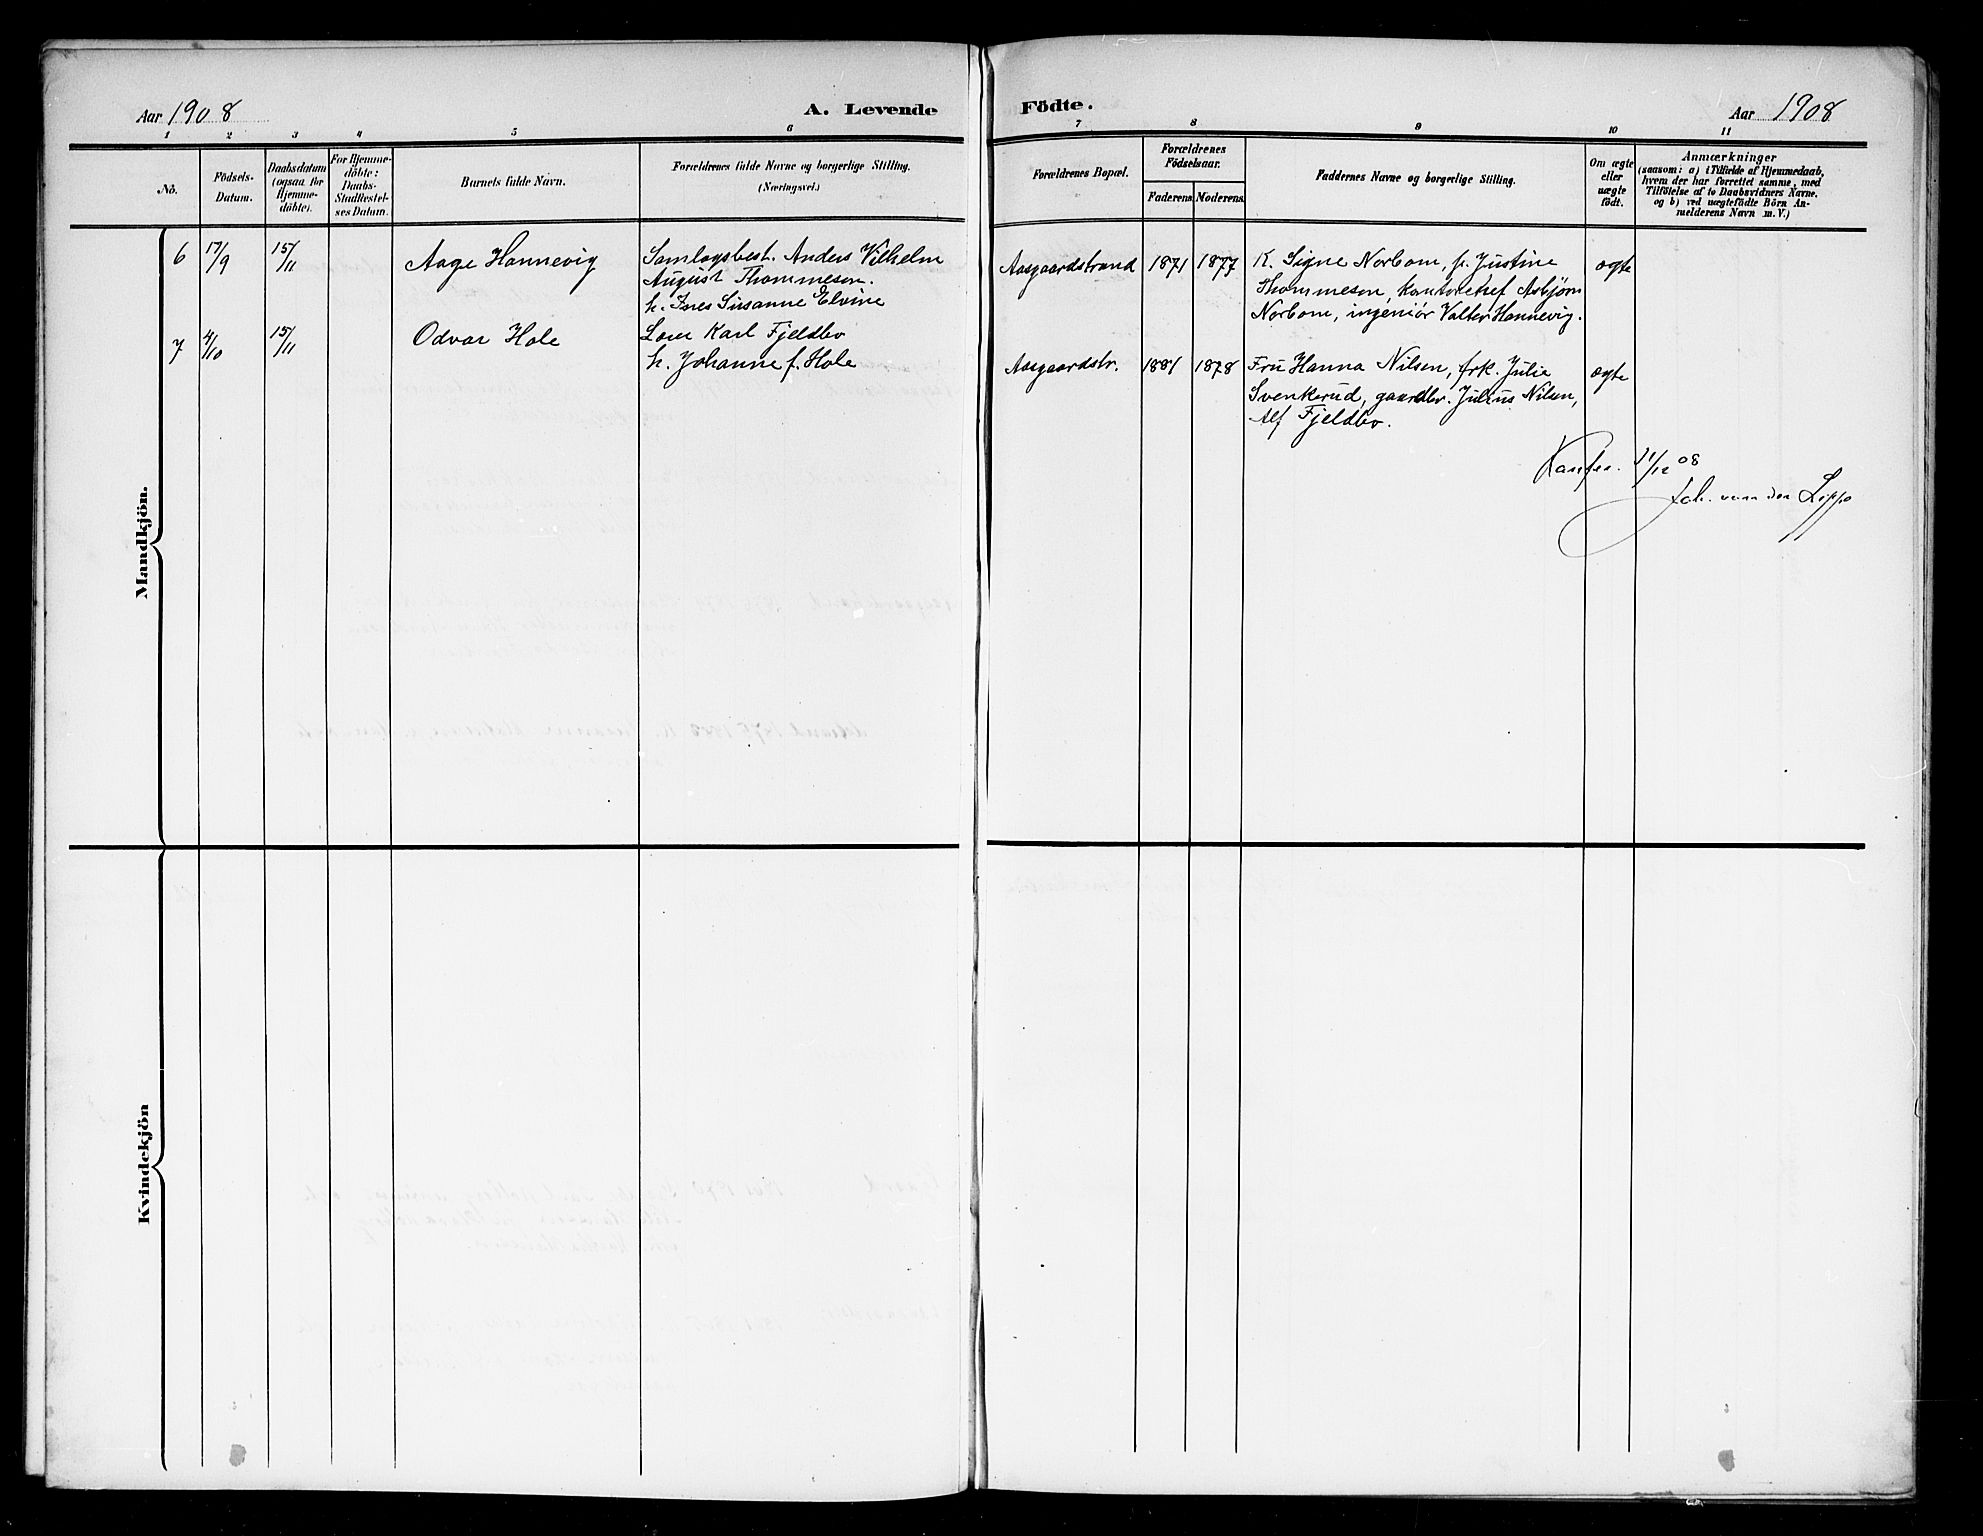 Aar 1908
A. Levende
Födte.
Aar 1908
1 2 3 4 5 6
7 8 9 10 11
No.
Födsels-Datum.
Daabsdatum (ogsaa for Hjemme-döbte).
For Hjemme-döbte: Daabs-Stadfæstel-ses Datum.
Barnets fulde Navn.
Forældrenes fulde Navne og borgerlige Stilling. (Næringsvei.)
Forældrenes Bopæl.
Forældrenes Födselsaar.
Faderens. Moderens.
Faddernes Navne og borgerlige Stilling.
Om ægte eller uægte födt.
Anmærkninger
(saasom: a) i Tilfælde af Hjemmedaab,
hvem der har forrettet samme, med
Tilföielse af to Daabsvidners Navne.
og b) ved uægtefödte Börn An-
melderens Navn m. V.)
Mandkjön.
6 17/9 15/11 Aage Hannevig
Samlagsbest. Anders Vilhelm
August Thommesen.
h. Ines Susanne Elvine
Aasgaardstrand 1871 1877
K. Signe Norbom, f. Justine
Thommesen, kontorchef Asbjørn
Norbom, ingeniør Valter Hannevig.
ægte
7 4/10 15/11 Odvar Hole
Karl Fjeldbo
h. Johanne f. Hole
Aasgaardstr. 1881 1878
Fru Hanna Nilsen, frk. Julie
Svenkerud, gaardbr. Julius Nilsen,
Alf Fjeldbo.
ægte
08
Joh. van der Lippe
Kvindekjön